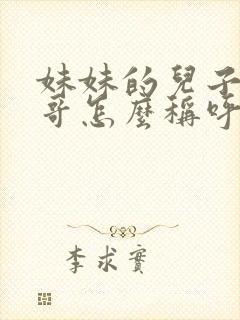 妹妹的兒子
哥怎麼稱呼
李求實